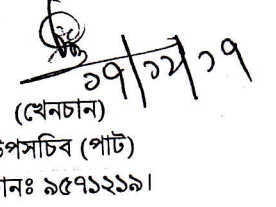 ১৭|১২|১৭
(খেনচান)
উপসচিব (পাট)
ফোনঃ ৯৫৭১২১৯।